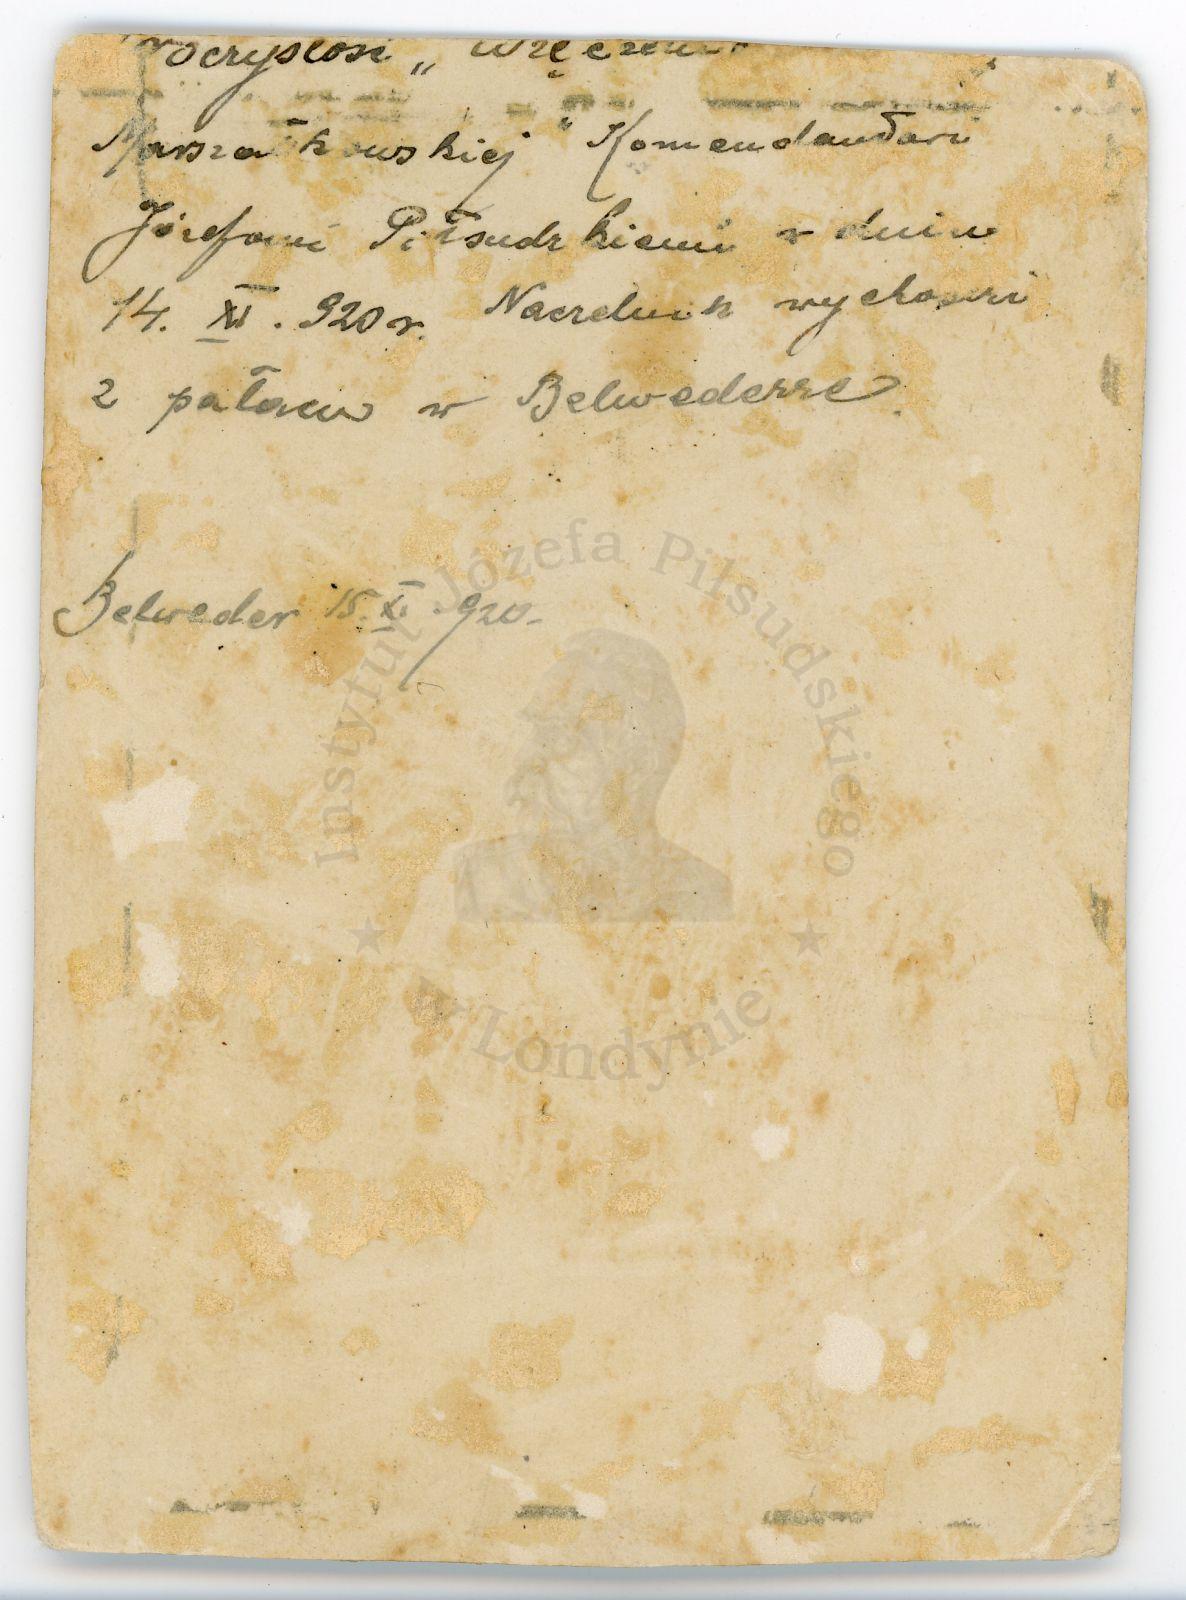 Uroczystość „ wręczenia
Marszałkowskiej Komendantowi
Józefowi Piłsudzkiemu w dniu
14. XI. 920 r. Naczelnik wychodzi
z pałacu w Belwederze.
Belweder 15.XI.920.-
Instytut Józefa Piłsudskiego
w Londynie